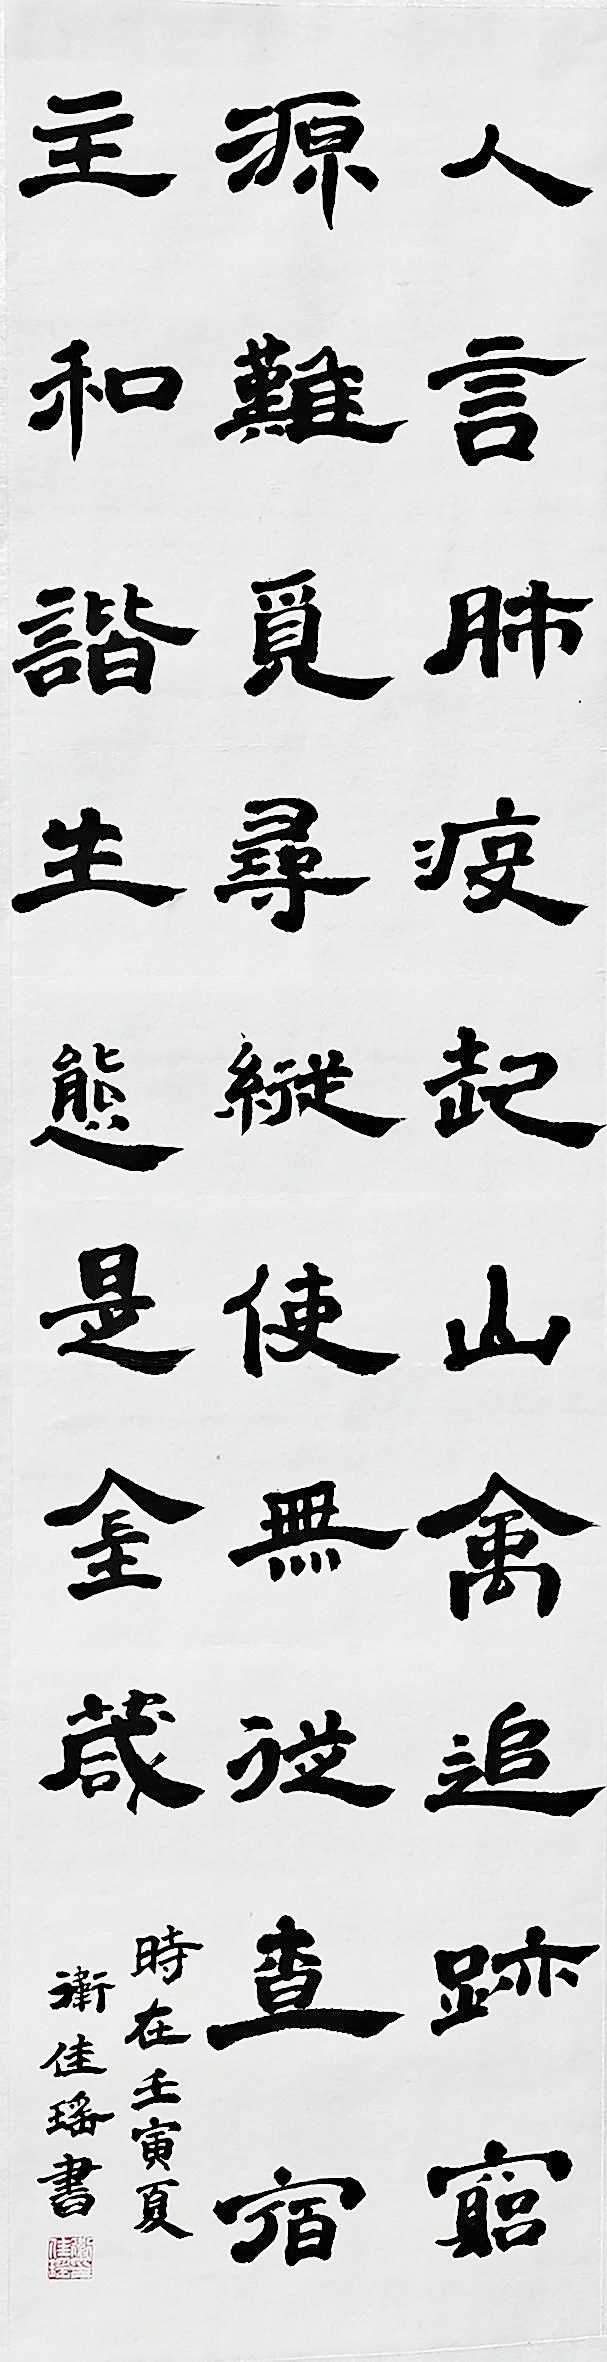 人言肺疫起山禽追跡窮
源難覓尋縱使無從查宿
主和諧生態是金箴
時在壬寅夏
衛佳瑤書